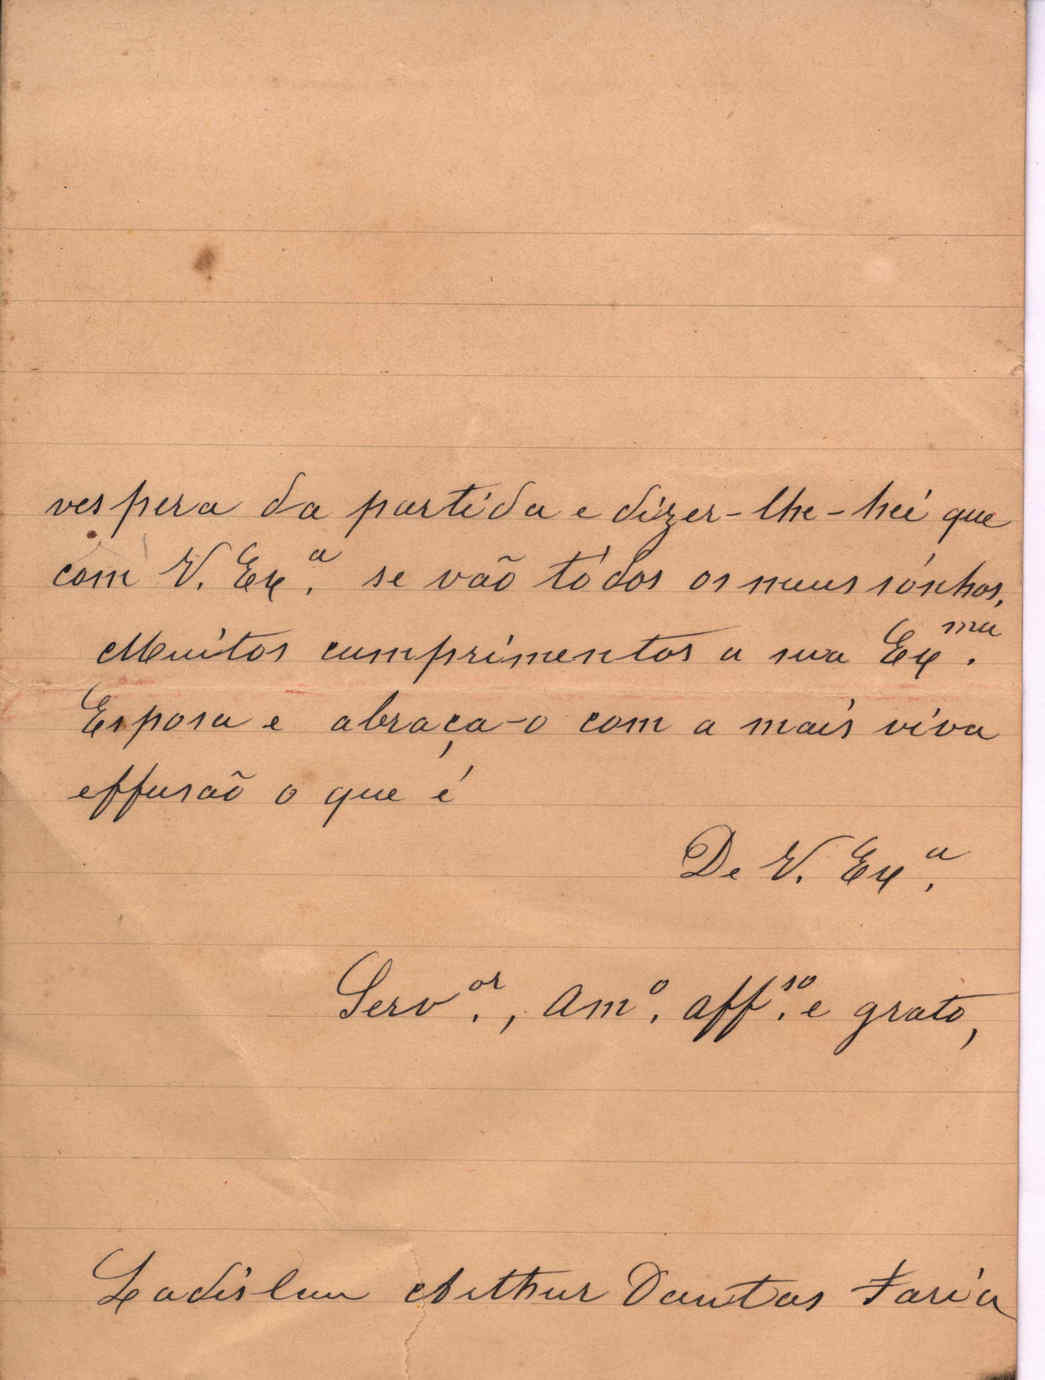 vespera da partida e dizer-lhe-hei que
com V. Exª. se vão tódos os meus sónhos.
Muitos cumprimentos a sua Exma.
Esposa e abraça-o com a mais viva
effusão o que é
De V. Exª.
Servor., Amº. Affso. e grato,
Ladislau Arthur Dantas Faria